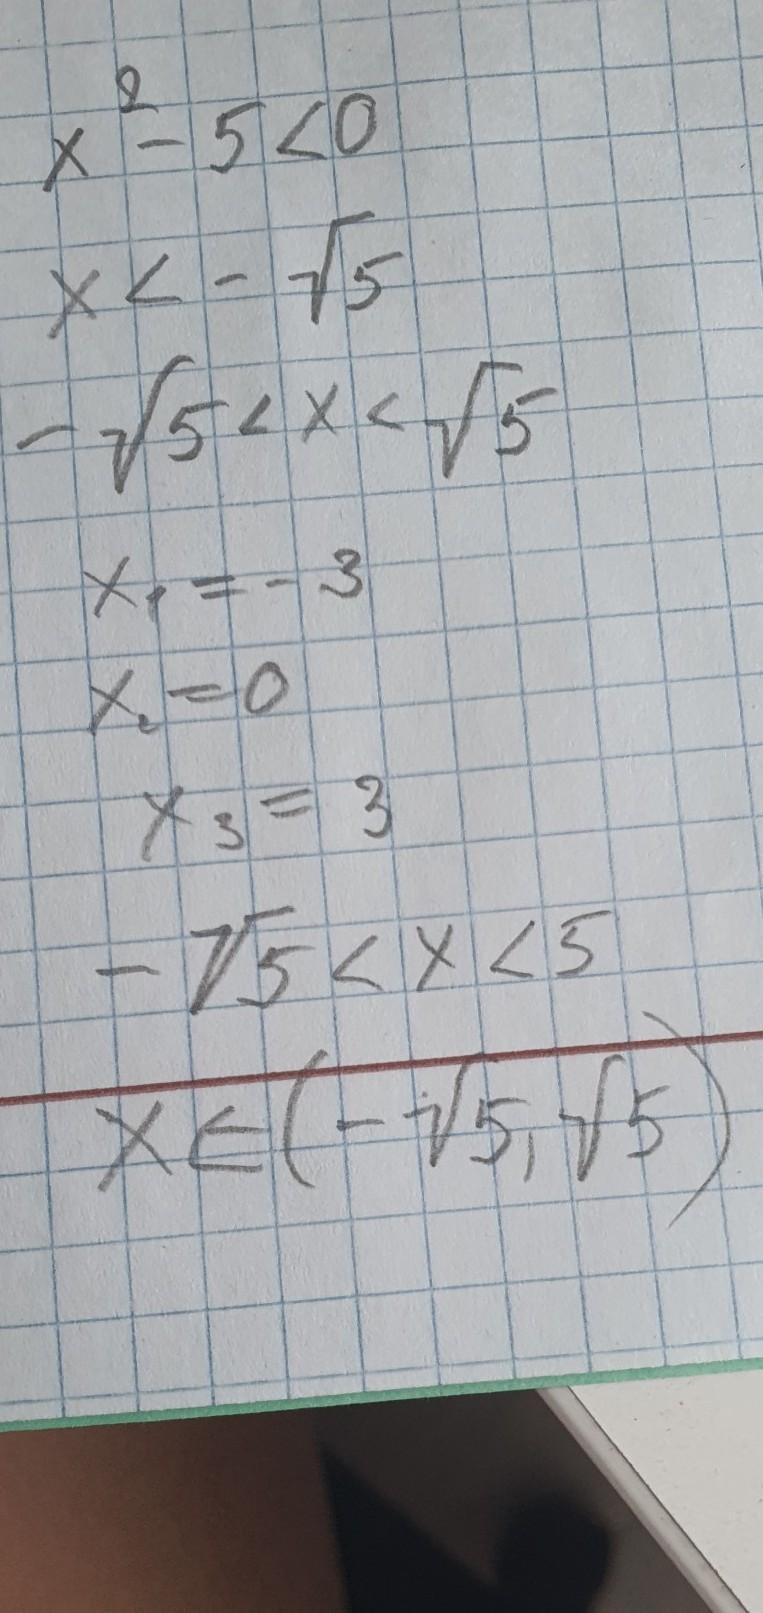 x² - 5 < 0
x < - √5
- √5 < x < √5
x₁ = - 3
x₂ = 0
x₃ = 3
- √5 < x < 5
x ∈ (- √5, √5)